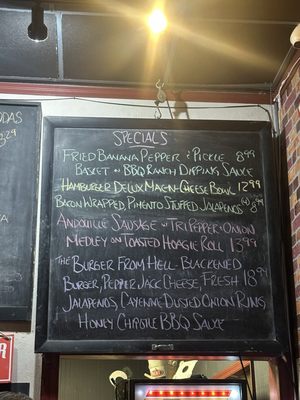 SPECIALS
FRIED BANANA PEPPER & PICKLE 8.99
BASKET W/ BBQ RANCH DIPPING SAUCE
HAMBURGER DELUX MAC-N-CHEESE BOWL 12.99
BACON WRAPPED, PIMENTO STUFFED JALAPENOS (4) 8.99
ANDOUILLE SAUSAGE W/ TRI PEPPER & ONION
MEDLEY ON TOASTED HOAGIE ROLL 13.99
THE BURGER FROM HELL - BLACKENED
BURGER, PEPPER JACK CHEESE, FRESH 18.99
JALAPENOS, CAYENNE DUSTED ONION RINGS,
HONEY CHIPOTLE BBQ SAUCE